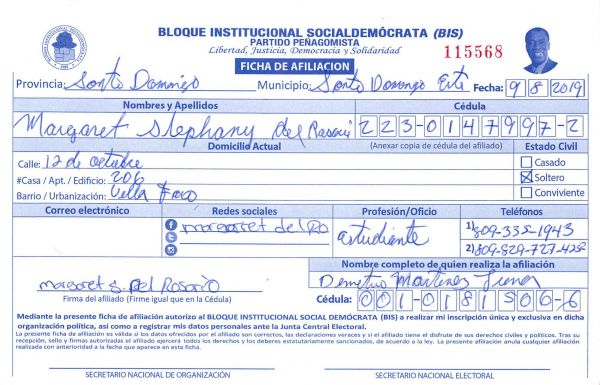 BLOQUE INSTITUCIONAL SOCIALDEMÓCRATA (BIS)
PARTIDO PEÑAGOMISTA
Libertad, Justicia, Democracia y Solidaridad
115568
FICHA DE AFILIACION
Provincia: Santo Domingo Municipio: Santo Domingo Este Fecha: 9/8/2019
Nombres y Apellidos Cédula
Margaret Stephany Del Rosario 223-0147997-2
Domicilio Actual (Anexar copia de cédula del afiliado) Estado Civil
Calle: 12 de octubre Casado
#Casa / Apt. / Edificio: 206 Soltero
Barrio / Urbanización: Villa Faro Conviviente
Correo electrónico Redes sociales Profesión/Oficio Teléfonos
margaret del Ro estudiante 1) 809-335-1943
2) 809-829-727-4252
Nombre completo de quien realiza la afiliación
margaret s. Del Rosario Demetrio Martinez
Firma del afiliado (Firme igual que en la Cédula) Cédula: 001-0181506-6
Mediante la presente ficha de afiliación autorizo al BLOQUE INSTITUCIONAL SOCIAL DEMÓCRATA (BIS) a realizar mi inscripción única y exclusiva en dicha
organización política, así como a registrar mis datos personales ante la Junta Central Electoral.
La presente ficha de afiliación es válida si los datos ofrecidos por el afiliado son correctos, las declaraciones veraces y si el afiliado tiene el disfrute de sus derechos civiles y políticos. Tras su
recepción, sello y firmas autorizadas el afiliado ejercerá todos los derechos y los deberes estatutariamente sancionados, de acuerdo a la ley. La presente afiliación anula cualquier afiliación
realizada con anterioridad a la fecha que aparece en esta ficha.
SECRETARIO NACIONAL DE ORGANIZACIÓN SECRETARIO NACIONAL ELECTORAL